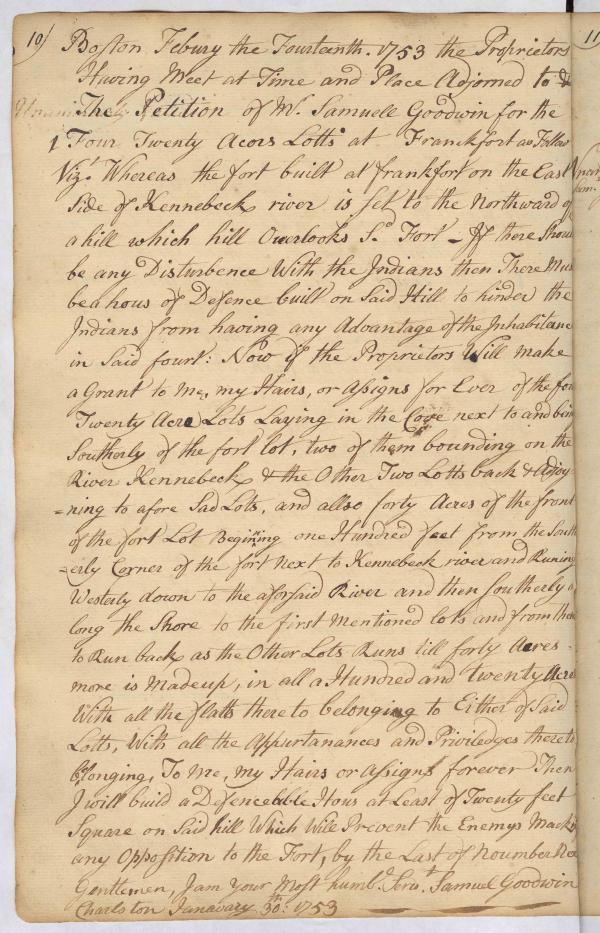 10/
Boston Febury the Fourteenth. 1753 the Proprietors
Having Meet at Time and Place Adjorned to &
The Petition of Mr. Samuell Goodwin for the
1 Four Twenty Acors Lotts at Franckfort as Follow
Viz.t Whereas the fort built at frankfort on the East
Side of Kennebeck river is Set to the Northward of
a hill which hill Overlooks Sd. Fort – If there Shou
be any Disturbence With the Indians then There Mus
be a hous of Defence built on Said Hill to hinder the
Indians from having any Advantage of the Inhabitanc
in Said fourt: Now if the Proprietors Will make
a Grant to Me, my Hairs, or Assigns for Ever of the fou
Twenty Acre Lots Laying in the Cove next to and bein
Southerly of the fort lot, two of them bounding on the
River Kennebeck & the Other Two Lotts back & Adjoy
=ning to afore Sad Lots, and allso forty Acres of the front
of the fort Lot Begining one Hundred feet from the South
=erly Corner of the fort Next to Kennebeck river and Runing
Westerly down to the aforsaid River and then Southerly a
long the Shore to the first Mentioned lots and from thence
to Run back as the Other Lots Runs till forty Acres
more is Made up, in all a Hundred and twenty Acres
With all the flatts there to belonging to Either of Said
Lotts, With all the Appurtanances and Priviledges there to
belonging, To Me, my Hairs or Assigns forever Then
I will build a Defenceble Hous at Least of Twenty feet
Square on Said hill Which Will Prevent the Enemys Mack
any Opposition to the Fort, by the Last of Noumber Nex
Gentlemen, I am Your Most humb.l Serv.t Samuel Goodwin
Charlston Janauary 30th: 1753
11